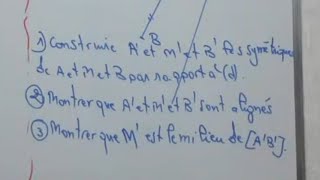 B
1) Construire A' et M' et B' les symétriques
de A et M et B par rapport à (d).
② Montrer que A' et M' et B' sont alignés
③ Montrer que M' est le milieu de [A'B'].